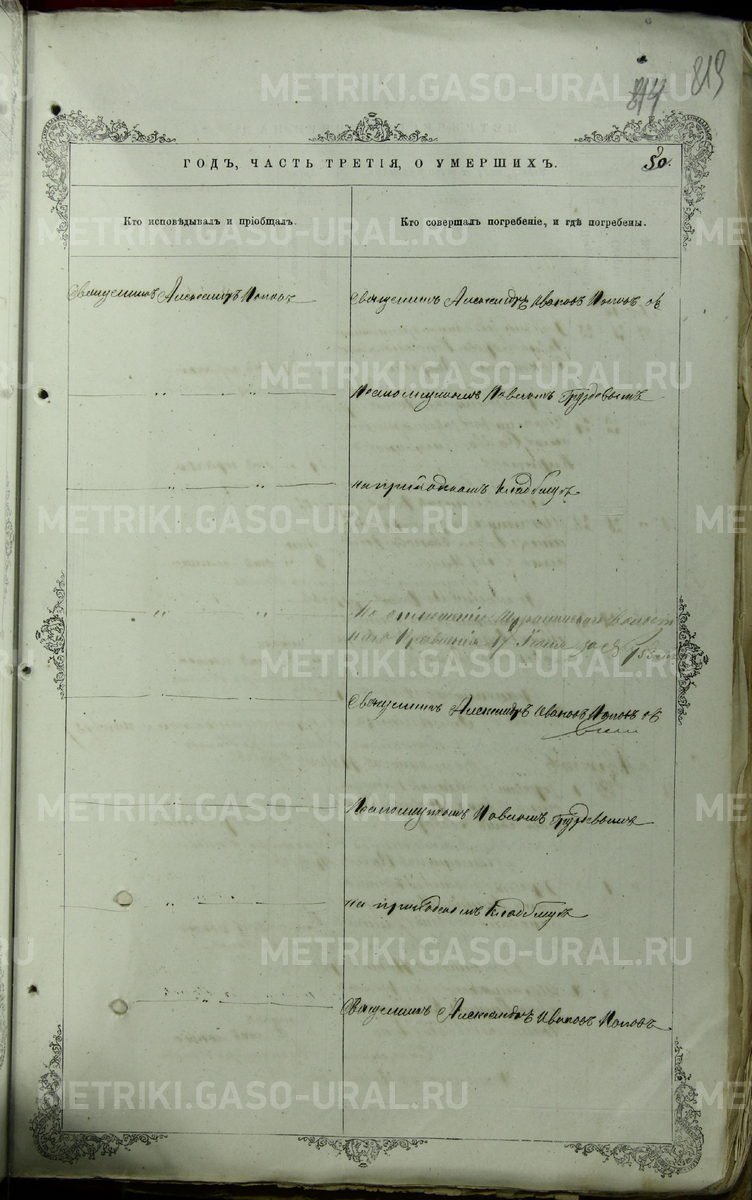 819
814
ГОДЪ, ЧАСТЬ ТРЕТІЯ, О УМЕРШИХЪ.
50.
Кто исповѣдывалъ и пріобщалъ.
Кто совершалъ погребеніе, и гдѣ погребены.
Священникъ Александръ Поповъ
Священникъ Александръ Ивановъ Поповъ съ
Псаломщикомъ Павломъ Груздевымъ
на приходскомъ кладбищѣ
По отношенію Волост
наго Правленія 17 Іюня
Священникъ Александръ Ивановъ Поповъ съ
Псаломщикомъ Павломъ Груздевымъ
на приходскомъ кладбищѣ
Священникъ Александръ Ивановъ Поповъ
METRIKI.GASO-URAL.RU